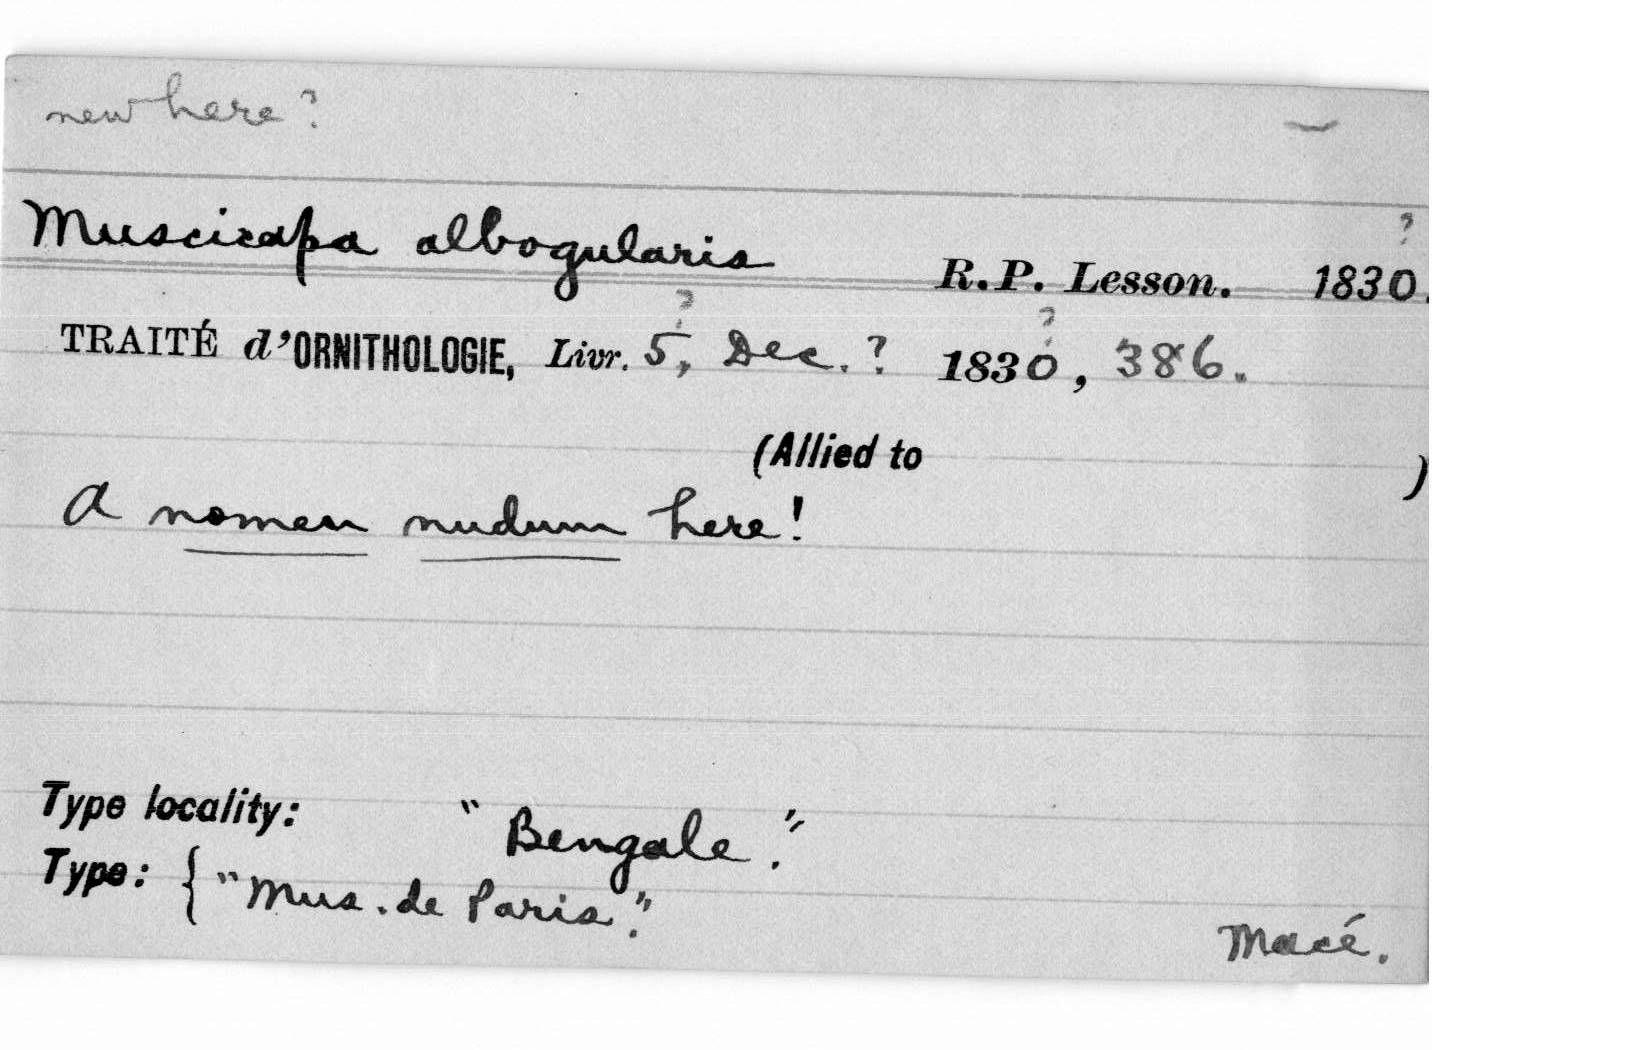 new here?
Muscicapa albogularis R.P. Lesson. 1830.?
TRAITÉ d'ORNITHOLOGIE, Livr. 5?, Dec.? 1830?, 386.
(Allied to )
A nomen nudum here!
Type locality: "Bengale."
Type: { "Mus. de Paris."
Macé.